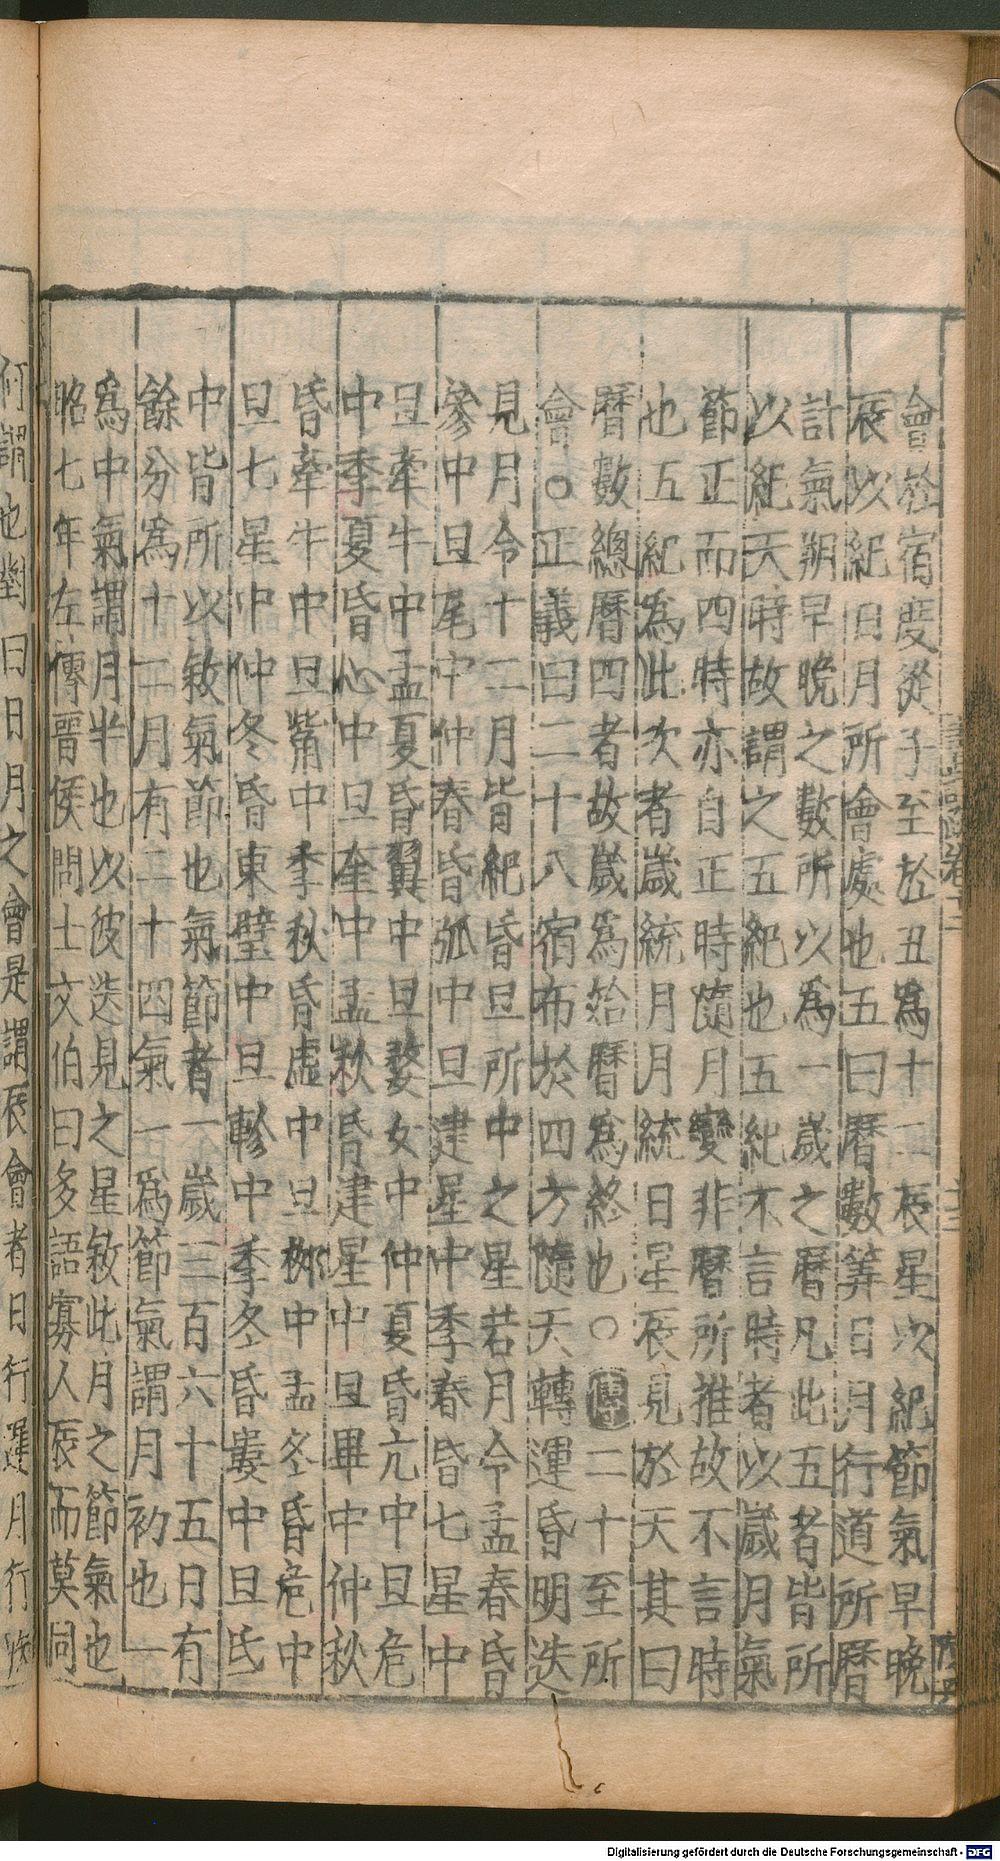 會於宿度從子至於丑爲十二辰星以紀節氣早晚
辰以紀日月所會處也五曰曆數筭日月行道所曆
計氣朔早晚之數所以爲一歲之曆凡此五者皆所
以紀天時故謂之五紀也五紀不言時者以歲月氣
節正而四時亦自正時隨月變非曆所推故不言時
也五紀爲此次者歲統月月統日星辰見於天其曰
曆數總曆四者故歲爲始曆爲終也○傳二十至所
會○正義曰二十八宿布於四方隨天轉運昏明迭
見月令十二月皆紀昏旦所中之星若月令孟春昏
參中旦尾中仲春昏弧中旦建星中季春昏七星中
旦牽牛中孟夏昏翼中旦婺女中仲夏昏亢中旦危
中季夏昏心中旦奎中孟秋昏建星中旦畢中仲秋
昏牽牛中旦觜中季秋昏虛中旦桺中孟冬昏危中
旦七星中仲冬昏東壁中旦軫中季冬昏婁中旦氐
中皆所以敘氣節也氣節者一歲三百六十五日有
餘分爲十二月有二十四氣一爲節氣謂月初也一
爲中氣謂月半也以彼迭見之星敘此月之節氣也
昭七年左傳晉侯問士文伯曰多語寡人辰而莫同
何謂也對曰日月之會是謂辰會者日行遲月行疾
Digitalisierung gefördert durch die Deutsche Forschungsgemeinschaft - DFG